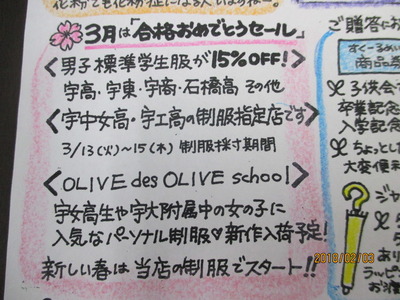 3月は「合格おめでとうセール」
<男子標準学生服が15%OFF!>
宇高・宇東・宇商・石橋高 その他
<宇中女高・宇工高の制服指定店です>
3/13(火)~15(木) 制服採寸期間
<OLIVE des OLIVE school>
宇女高生や宇大附属中の女の子に
人気なパーソナル制服♡新作入荷予定!
新しい春は当店の制服でスタート!!
ご贈答に
すくーるめいと
商品券
子供会で
卒業記念
入学記念
ちょっとした
大変便利
2018/02/03